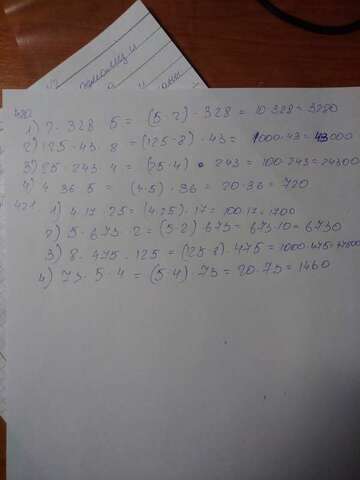 420
1) 2 · 328 · 5 = (5 · 2) · 328 = 10 · 328 = 3280
2) 125 · 43 · 8 = (125 · 8) · 43 = 1000 · 43 = 43000
3) 25 · 243 · 4 = (25 · 4) · 243 = 100 · 243 = 24300
4) 4 · 36 · 5 = (4 · 5) · 36 = 20 · 36 = 720
421
1) 4 · 17 · 25 = (4 · 25) · 17 = 100 · 17 = 1700
2) 5 · 673 · 2 = (5 · 2) 673 = 673 · 10 = 6730
3) 8 · 475 · 125 = (125 · 8) · 475 = 1000 · 475 =
4) 73 · 5 · 4 = (5 · 4) · 73 = 20 · 73 = 1460